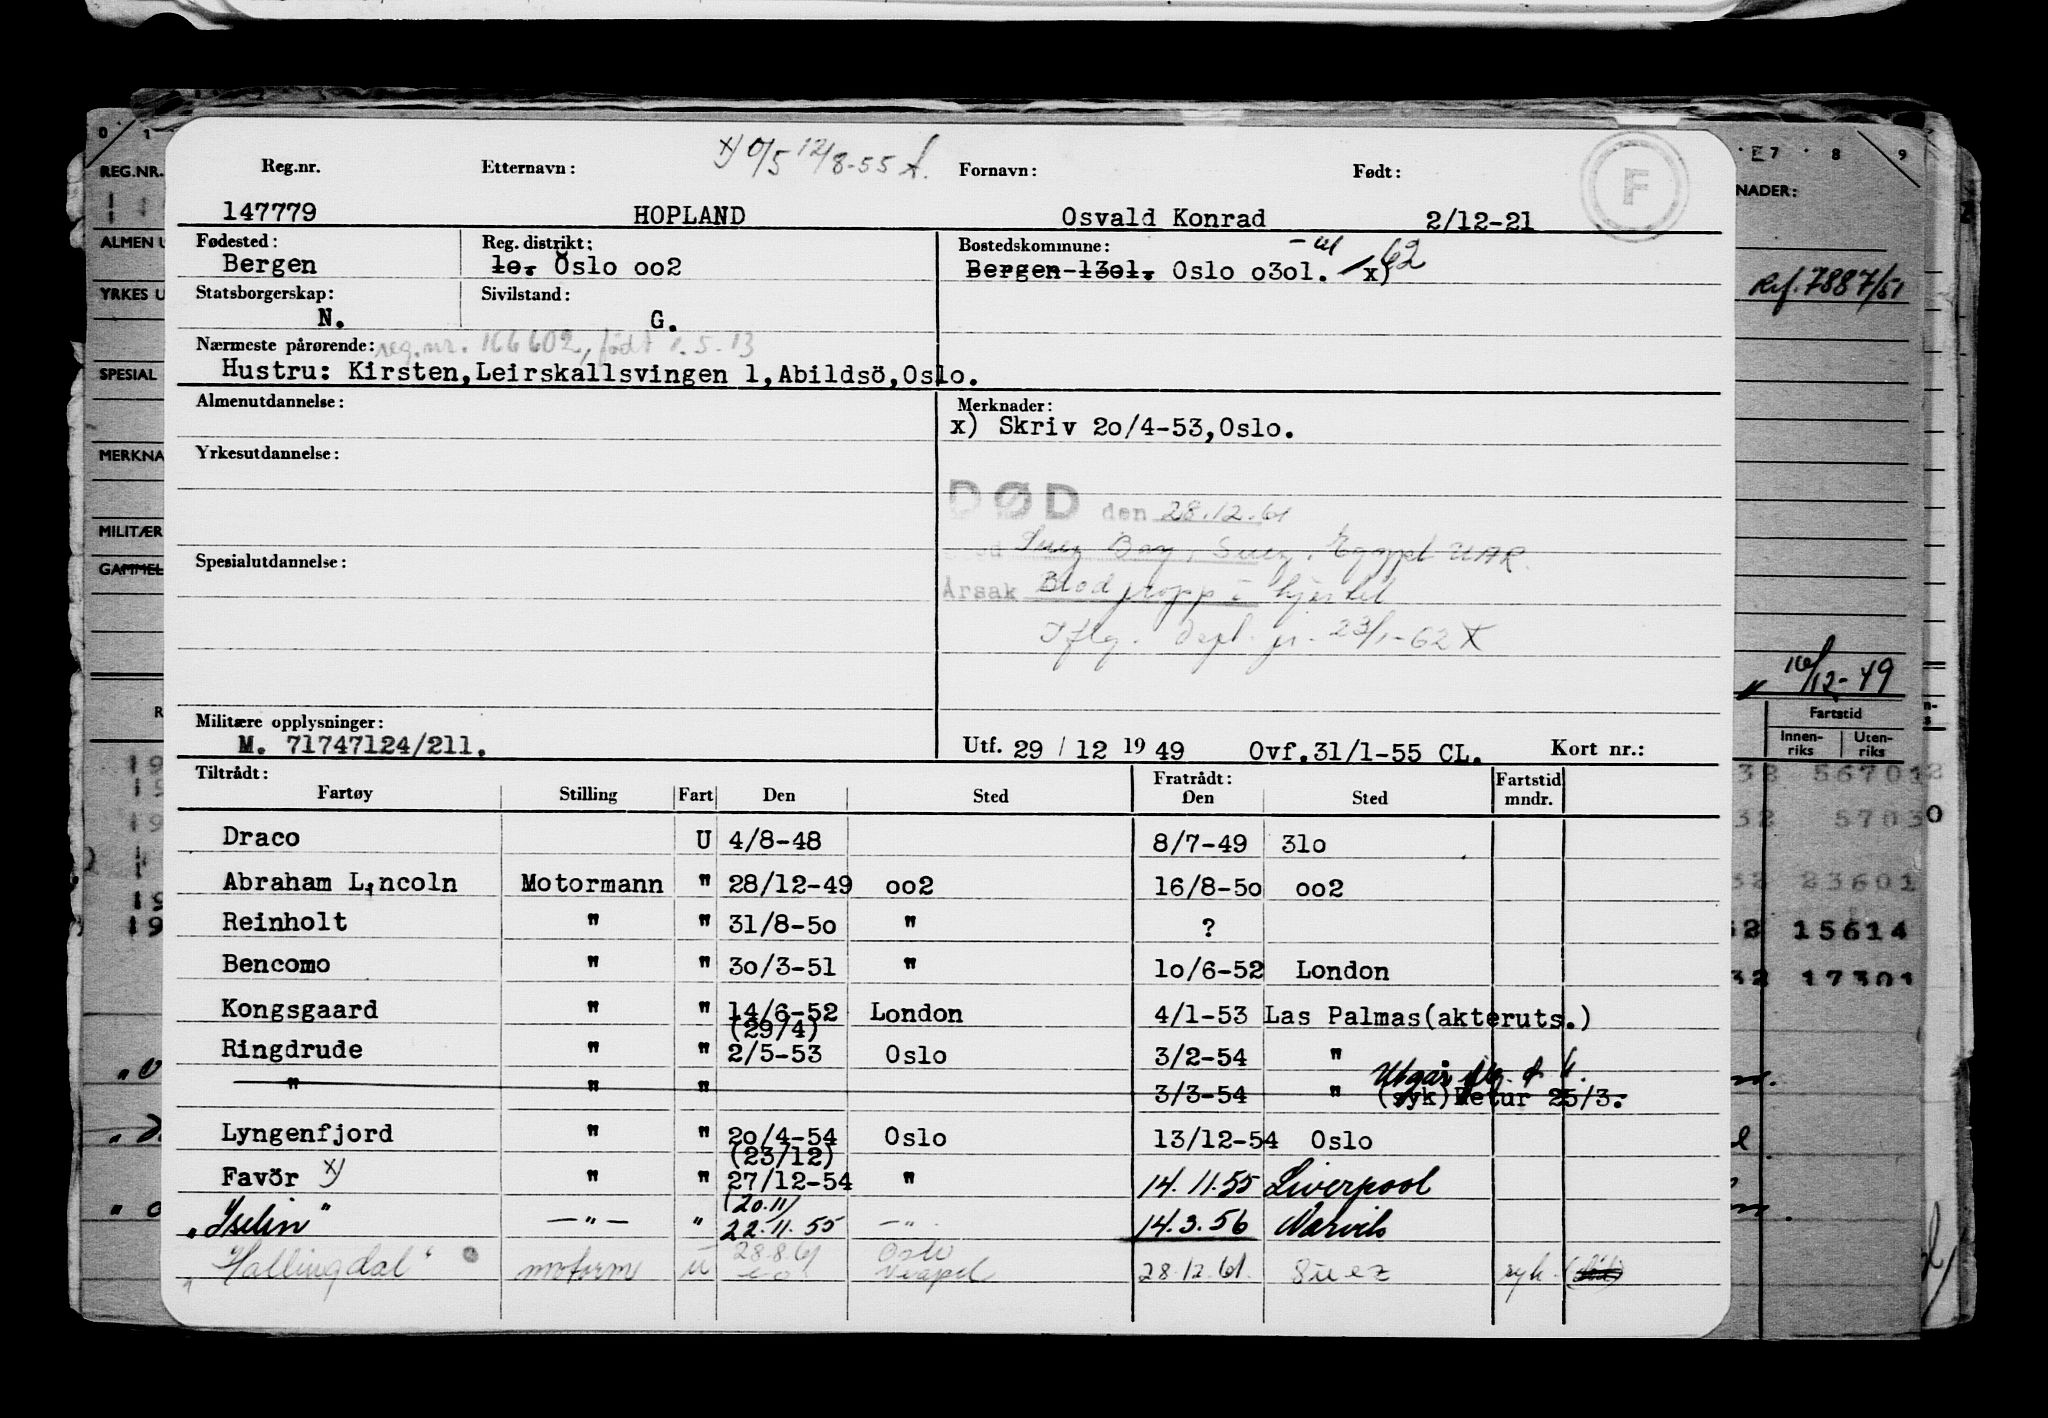 x) 0/5 12/8-55
Reg.nr. Etternavn: Fornavn: Født: F
147779 HOPLAND Osvald Konrad 2/12-21
Fødested: Reg. distrikt: Bostedskommune:
Bergen 10. Oslo oo2 Bergen-1301. Oslo o3ol. x) 62
Statsborgerskap: Sivilstand:
N. G.
Nærmeste pårørende: reg.nr. 166602, født 1.5.13
Hustru: Kirsten, Leirskallsvingen 1, Abildsö, Oslo.
Almenutdannelse: Merknader:
x) Skriv 2o/4-53, Oslo.
Yrkesutdannelse:
DØD den 28.12.61
Sted Suez Bay, Suez, Egypt UAR.
Spesialutdannelse:
Årsak Blodpropp i hjertet
Iflg. dept. jr. 23/1-62
Militære opplysninger:
M. 71747124/211. Utf. 29 / 12 19 49 Ovf. 31/1-55 CL. Kort nr.:
Tiltrådt: Fratrådt:
Fartøy Stilling Fart Den Sted Den Sted Fartstid mndr.
Draco U 4/8-48 8/7-49 31o
Abraham Lincoln Motormann " 28/12-49 oo2 16/8-5o oo2
Reinholt " " 31/8-5o " ?
Bencomo " " 3o/3-51 " 1o/6-52 London
Kongsgaard " " 14/6-52 London 4/1-53 Las Palmas(akteruts.)
(29/4)
Ringdrude " " 2/5-53 Oslo 3/2-54 "
Utgår flg.
" " " 3/3-54 " (syk) Retur 25/3.
Lyngenfjord " " 2o/4-54 Oslo 13/12-54 Oslo
(23/12)
Favör x) " " 27/12-54 " 14.11.55 Liverpool
(20.11)
"Iselin" -"- " 22.11.55 -"- 14.3.56 Narvik
28.8.61 Oslo
"Hallingdal" motorm u Neapel 28.12.61. Suez syk.
REG.NR.
YRKES
SPESIAL
MILITÆR
GAMMEL
Ref. 7887/51
16/12-49
Fartstid
Innenriks Utenriks
567012
57030
23601
15614
17301